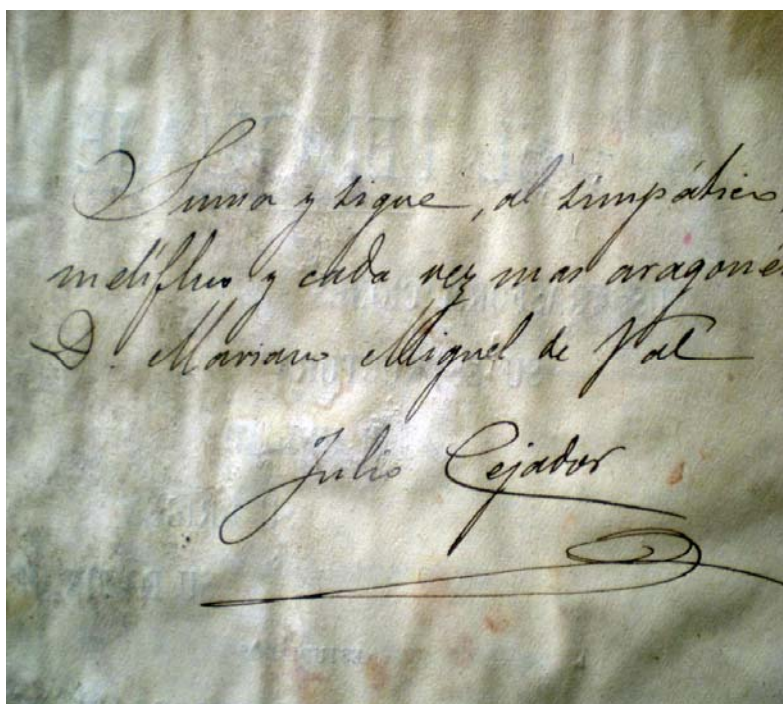 Suma y sigue, al simpático
melífluo y cada vez mas aragone
D. Mariano Miguel de Val
Julio Cejador